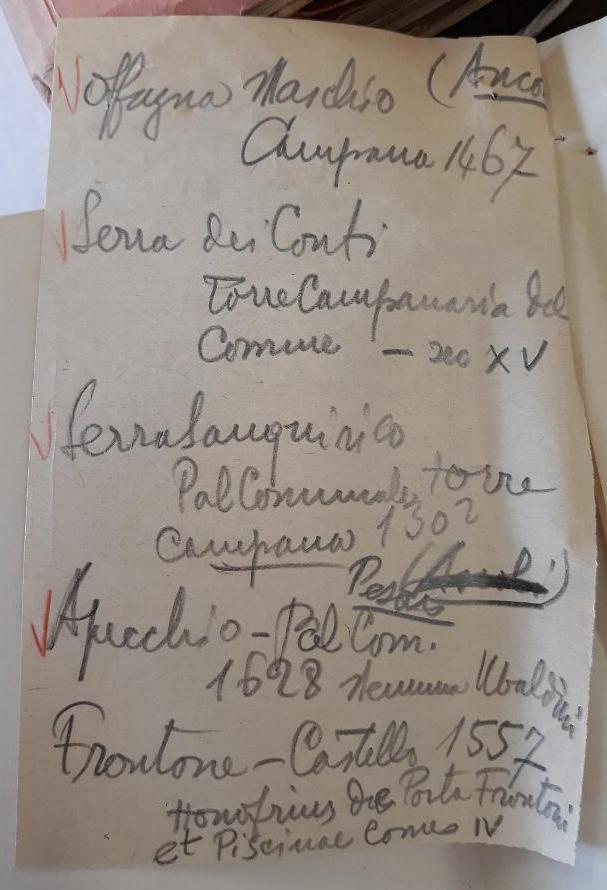 Offagna Maschio (Anco
Campana 1467
Serra dei Conti
Torre Campanaria del
Comune - sec XV
Serra Sanquirico
Pal Comunale, torre
Campana 1302
Pesaro
Apecchio - Pal Com.
1628 stemma Ubaldini
Frontone - Castello 1557
Honofrius de Porta Frontoni
et Piscinae Comes IV